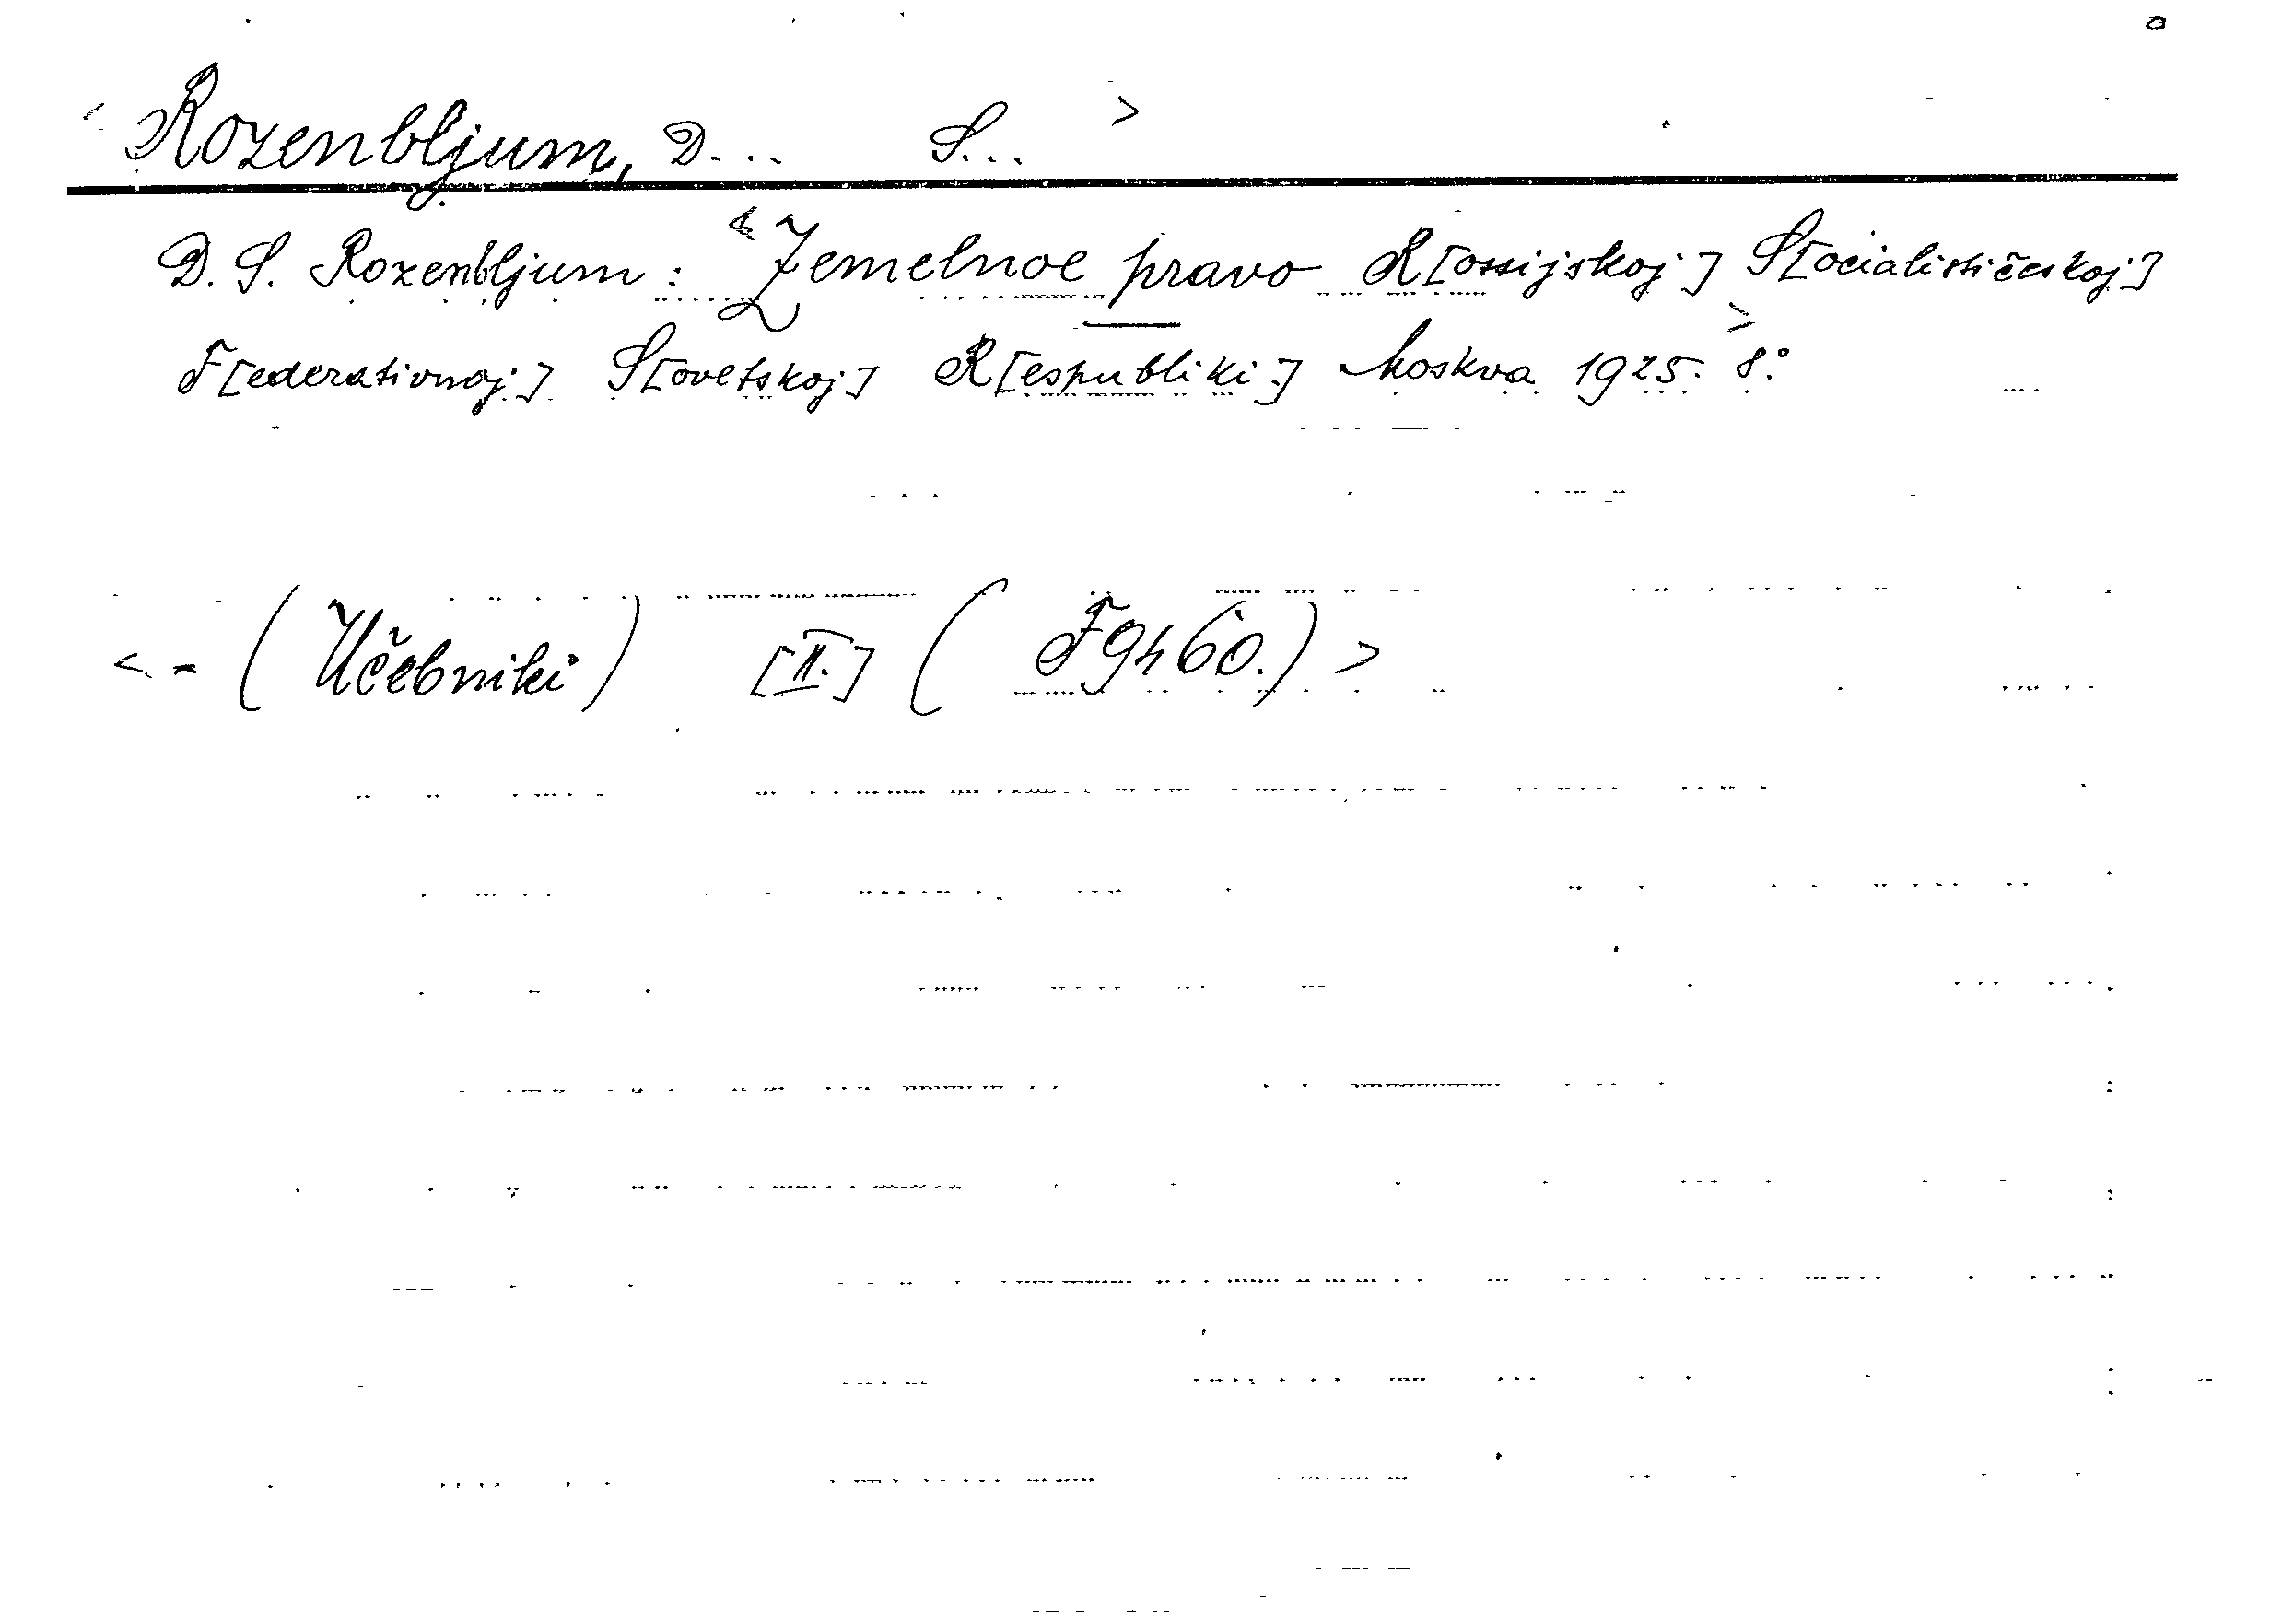 < Rozenbljum, D... S... >
D. S. Rozenbljum: «Zemelnoe pravo R[ossijskoj] S[ocialističeskoj]
F[ederativnoj] S[ovetskoj] R[espubliki.] Moskva 1925. 8.°
< - (Učebniki) [II.] ( F9460.) >